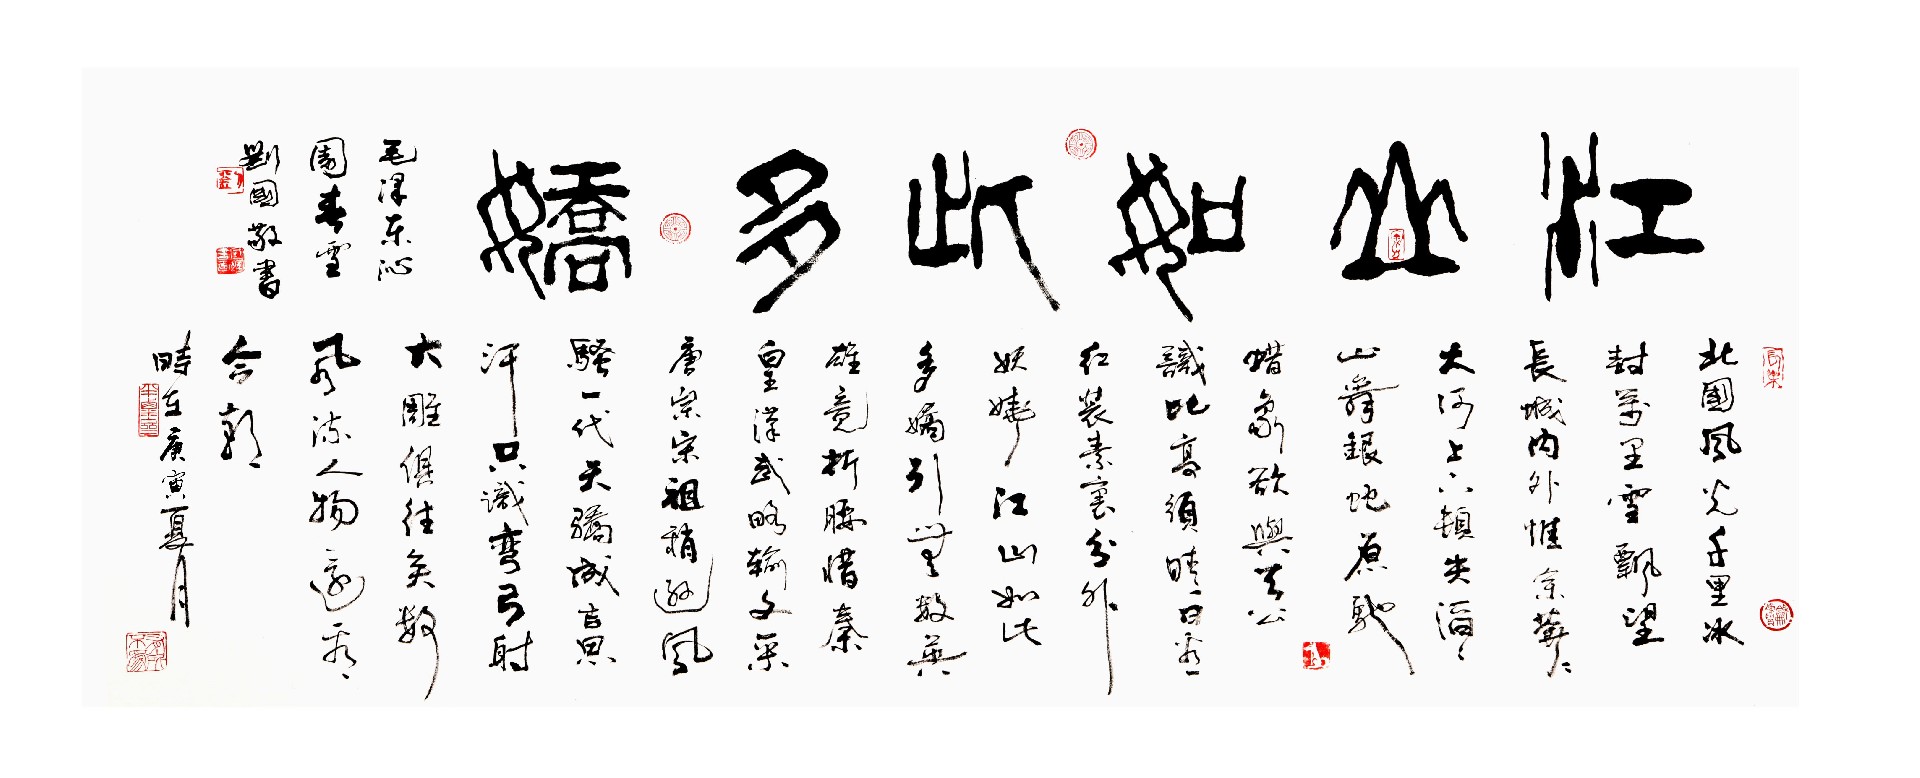 江山如此多嬌
北國風光千里冰
封萬里雪飄望
長城內外惟余莽〻
大河上下頓失滔〻
山舞銀蛇原馳
蜡象欲與天公
試比高須晴日看
紅裝素裹分外
妖嬈江山如此
多嬌引無數英
雄競折腰惜秦
皇漢武略輸文采
唐宗宋祖稍遜風
騷一代天驕成吉思
汗只識彎弓射
大雕俱往矣數
風流人物還看
今朝
毛澤東沁
園春雪
劉國敬書
時在庚寅夏月